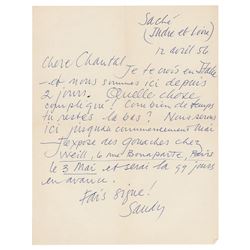 Saché
(Indre et Loire)
12 avril 56
Chere Chantal
Je te crois en Italie
et nous sommes ici depuis
2 jours. Quelle chose
compliqué! Combien de temps
tu restes la bas? Nous serons
ici jusqu'au commencement Mai
J'expose des gouaches chez
Weill, 6 rue Bonaparte, Paris
le 3 Mai et serai la 99 jours
en avance.
Fais signe!
Sandy